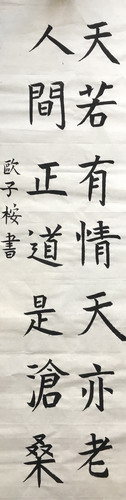 天若有情天亦老
人間正道是滄桑
歐子桉書